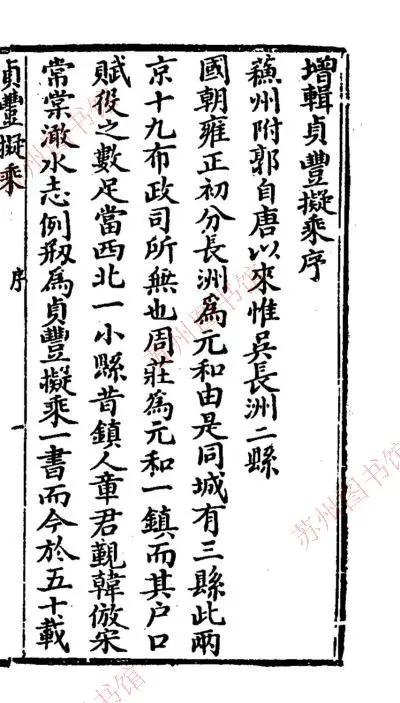 增輯貞豐擬乘序
蘇州附郭自唐以來惟吳長洲二縣
國朝雍正初分長洲為元和由是同城有三縣此兩
京十九布政司所無也周莊為元和一鎮而其户口
賦役之數足當西北一小縣昔鎮人章君覲韓倣宋
常棠澉水志例剏為貞豐擬乘一書而今於五十載
貞豐擬乘
序
一
苏州图书馆
苏州图书馆
苏州图书馆
书馆